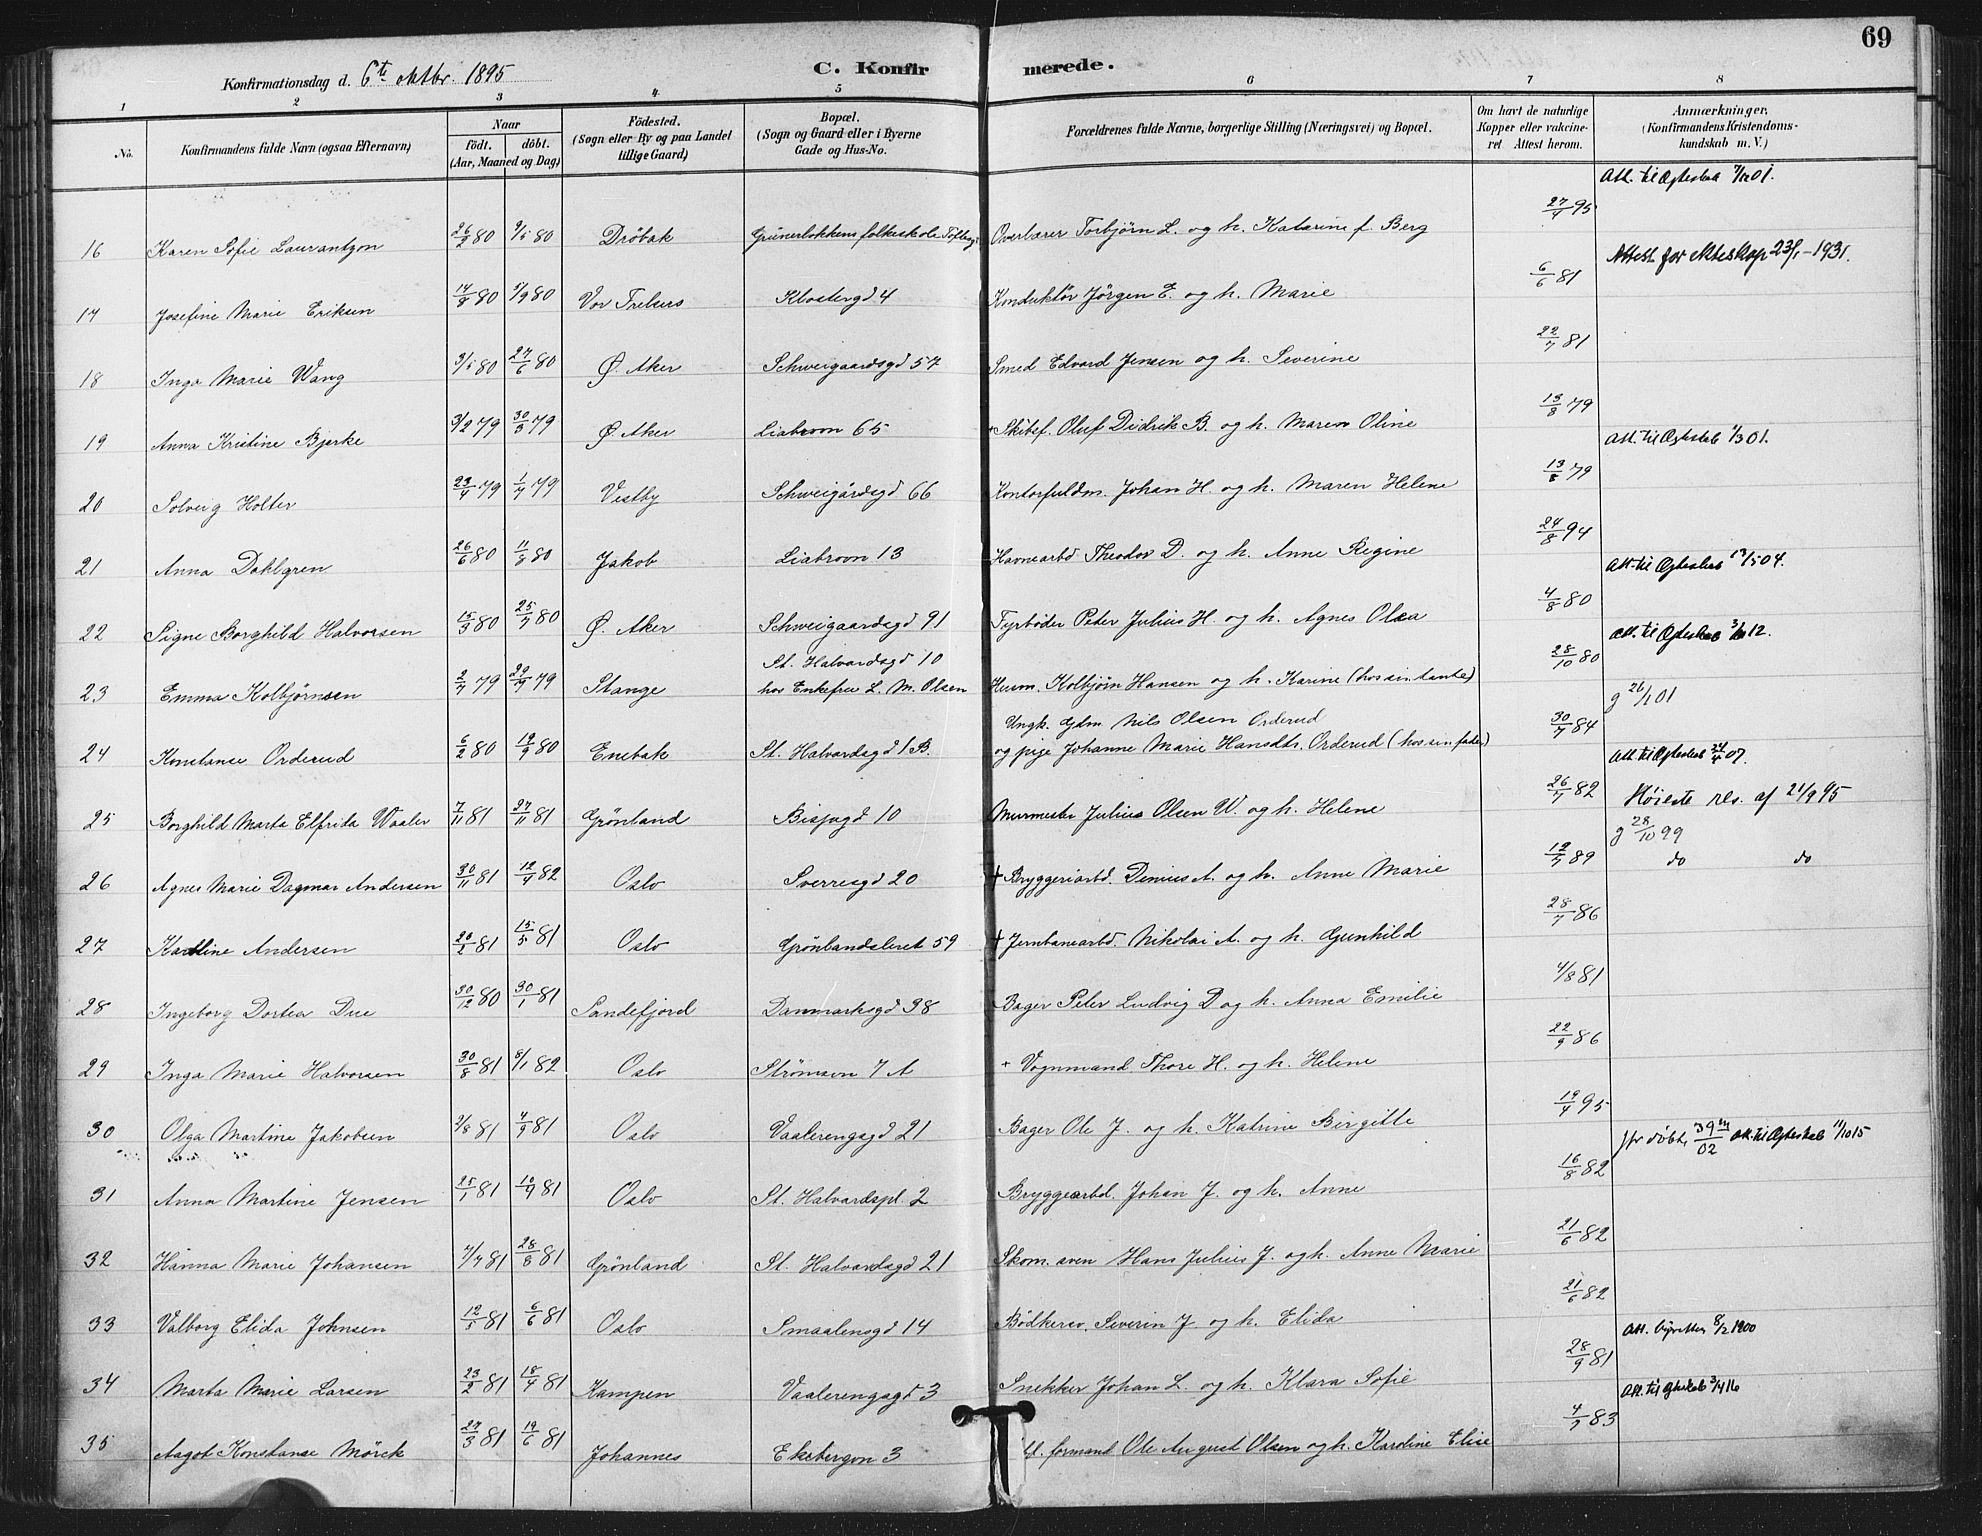 69
Konfirmationsdag d. 6te oktbr. 1895
C. Konfirmerede.
1 2 3 4 5 6 7 8
No.
Konfirmandens fulde Navn (ogsaa Efternavn)
Naar
födt. döbt.
(Aar, Maaned og Dag)
Födested.
(Sogn eller By og paa Landet
tillige Gaard)
Bopæl.
(Sogn og Gaard eller i Byerne
Gade og Hus-No.
Forældrenes fulde Navne, borgerlige Stilling (Næringsvei) og Bopæl.
Om havt de naturlige
Kopper eller vakcine-
ret Attest herom.
Anmærkninger.
(Konfirmandens Kristendoms-
kundskab m. V.)
Att. til Ægteskab 7/12 01.
16 Karen Sofie Laurantzon 26/2 80 9/5 80 Dröbak Grünerløkkens folkeskole Toftesg. Overlærer Torbjörn L. og h. Katarine f. Berg 27/4 95
Attest for ekteskap 23/1-1931.
17 Josefine Marie Eriksen 14/8 80 5/9 80 Vor Frelsers Klosterg̃d 4 Konduktör Jörgen E. og h. Marie 6/6 81
18 Inga Marie Wang 3/5 80 27/6 80 Ø. Aker Schweigaardsgd 57 Smed Edvard Jensen og h. Severine 22/7 81
19 Anna Kristine Bjerke 3/2 79 30/3 79 Ø. Aker Liabroen 65 + Skibsf. Oluf Didrik B. og h. Maren Oline 13/8 79
Att. til Ægteskab 1/3 01.
20 Solveig Holter 23/4 79 1/7 79 Vestby Schweigårdsgd 66 Kontorfuldm. Johan H. og h. Maren Helene 13/8 79
21 Anna Dahlgren 26/6 80 11/8 80 Jakob Liabroen 13 Havnearbd Theodor D. og h. Anne Regine 24/8 94
Att. til Ægteskab 13/5 04.
22 Signe Borghild Halvorsen 15/3 80 25/7 80 Ø. Aker Schweigaardsgd 91 Fyrböder Peter Julius H. og h. Agnes Olea 4/8 80
Att. til Ægteskab 3/10 12.
23 Emma Kolbjørnsen 2/7 79 20/7 79 Stange St. Halvardsgd 10
hos Enkefru L. M. Olsen Husm. Kolbjørn Hansen og h. Karine (hos sin tante) 28/10 80
g 26/1 01
24 Konstanse Orderud 6/2 80 19/9 80 Enebak St. Halvardsgd 1 B. Ungk. Gdm Nils Olsen Orderud
og pige Johanne Marie Hansdtr. Orderud (hos sin fader) 30/7 84
Att. til Ægteskab 24/4 07.
25 Borghild Marta Elfrida Waaler 7/11 81 27/11 81 Grönland Bispegd 10 Murmester Julius Olsen W. og h. Helene 26/7 82 Høieste res. af 21/9 95
g 28/10 99
26 Agnes Marie Dagmar Andersen 30/11 81 12/4 82 Oslo Sverresgd 20 + Bryggeriarbd. Dinius A. og h. Anne Marie 12/7 89 do do
27 Karoline Andersen 20/2 81 15/5 81 Oslo Grönlandsleret 59 + Jernbanearbd. Nikolai A. og h. Gunhild 28/7 86
28 Ingeborg Dortea Due 30/12 80 30/1 81 Sandefjord Danmarksgd 38 Bager Peter Ludvig D og h. Anna Emilie 4/8 81
29 Inga Marie Halvorsen 30/8 81 8/1 82 Oslo Strömsvn 7 A + Vognmand Thore H. og h. Helene 22/9 86
30 Olga Martine Jakobsen 2/8 81 4/9 81 Oslo Vaalerengsgd 21 Bager Ole J. og h. Katrine Birgitte 19/4 95
jfr döbt, 39/02 Att. til Ægteskab 11/10 15
31 Anna Martine Jensen 25/1 81 10/4 81 Oslo St. Halvardspl. 2 Bryggearbd. Johan J. og h. Anne 16/8 82
32 Hanna Marie Johansen 7/7 81 28/8 81 Grönland St. Halvardsgd 21 Skom. sven Hans Julius J. og h. Anne Marie 21/6 82
33 Valborg Elida Johnsen 12/5 81 6/6 81 Oslo Smaalensgd 14 Bödkersv. Severin J. og h. Elida 21/6 82
8/2 1900
34 Marta Marie Larsen 23/2 81 18/4 81 Kampen Vaalerengsgd 3 Snekker Johan L. og h. Klara Sofie 28/9 81
Att. til Ægteskab 3/4 16
35 Aagot Konstanse Mörck 27/3 81 19/6 81 Johannes Ekebergvn 3 formand Ole August Olsen og h. Karoline Elise 4/7 83